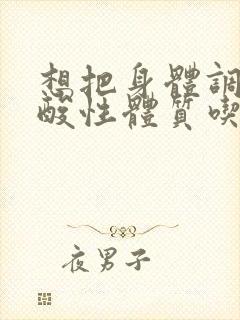 想把身體調
酸性體質喫
夜男子